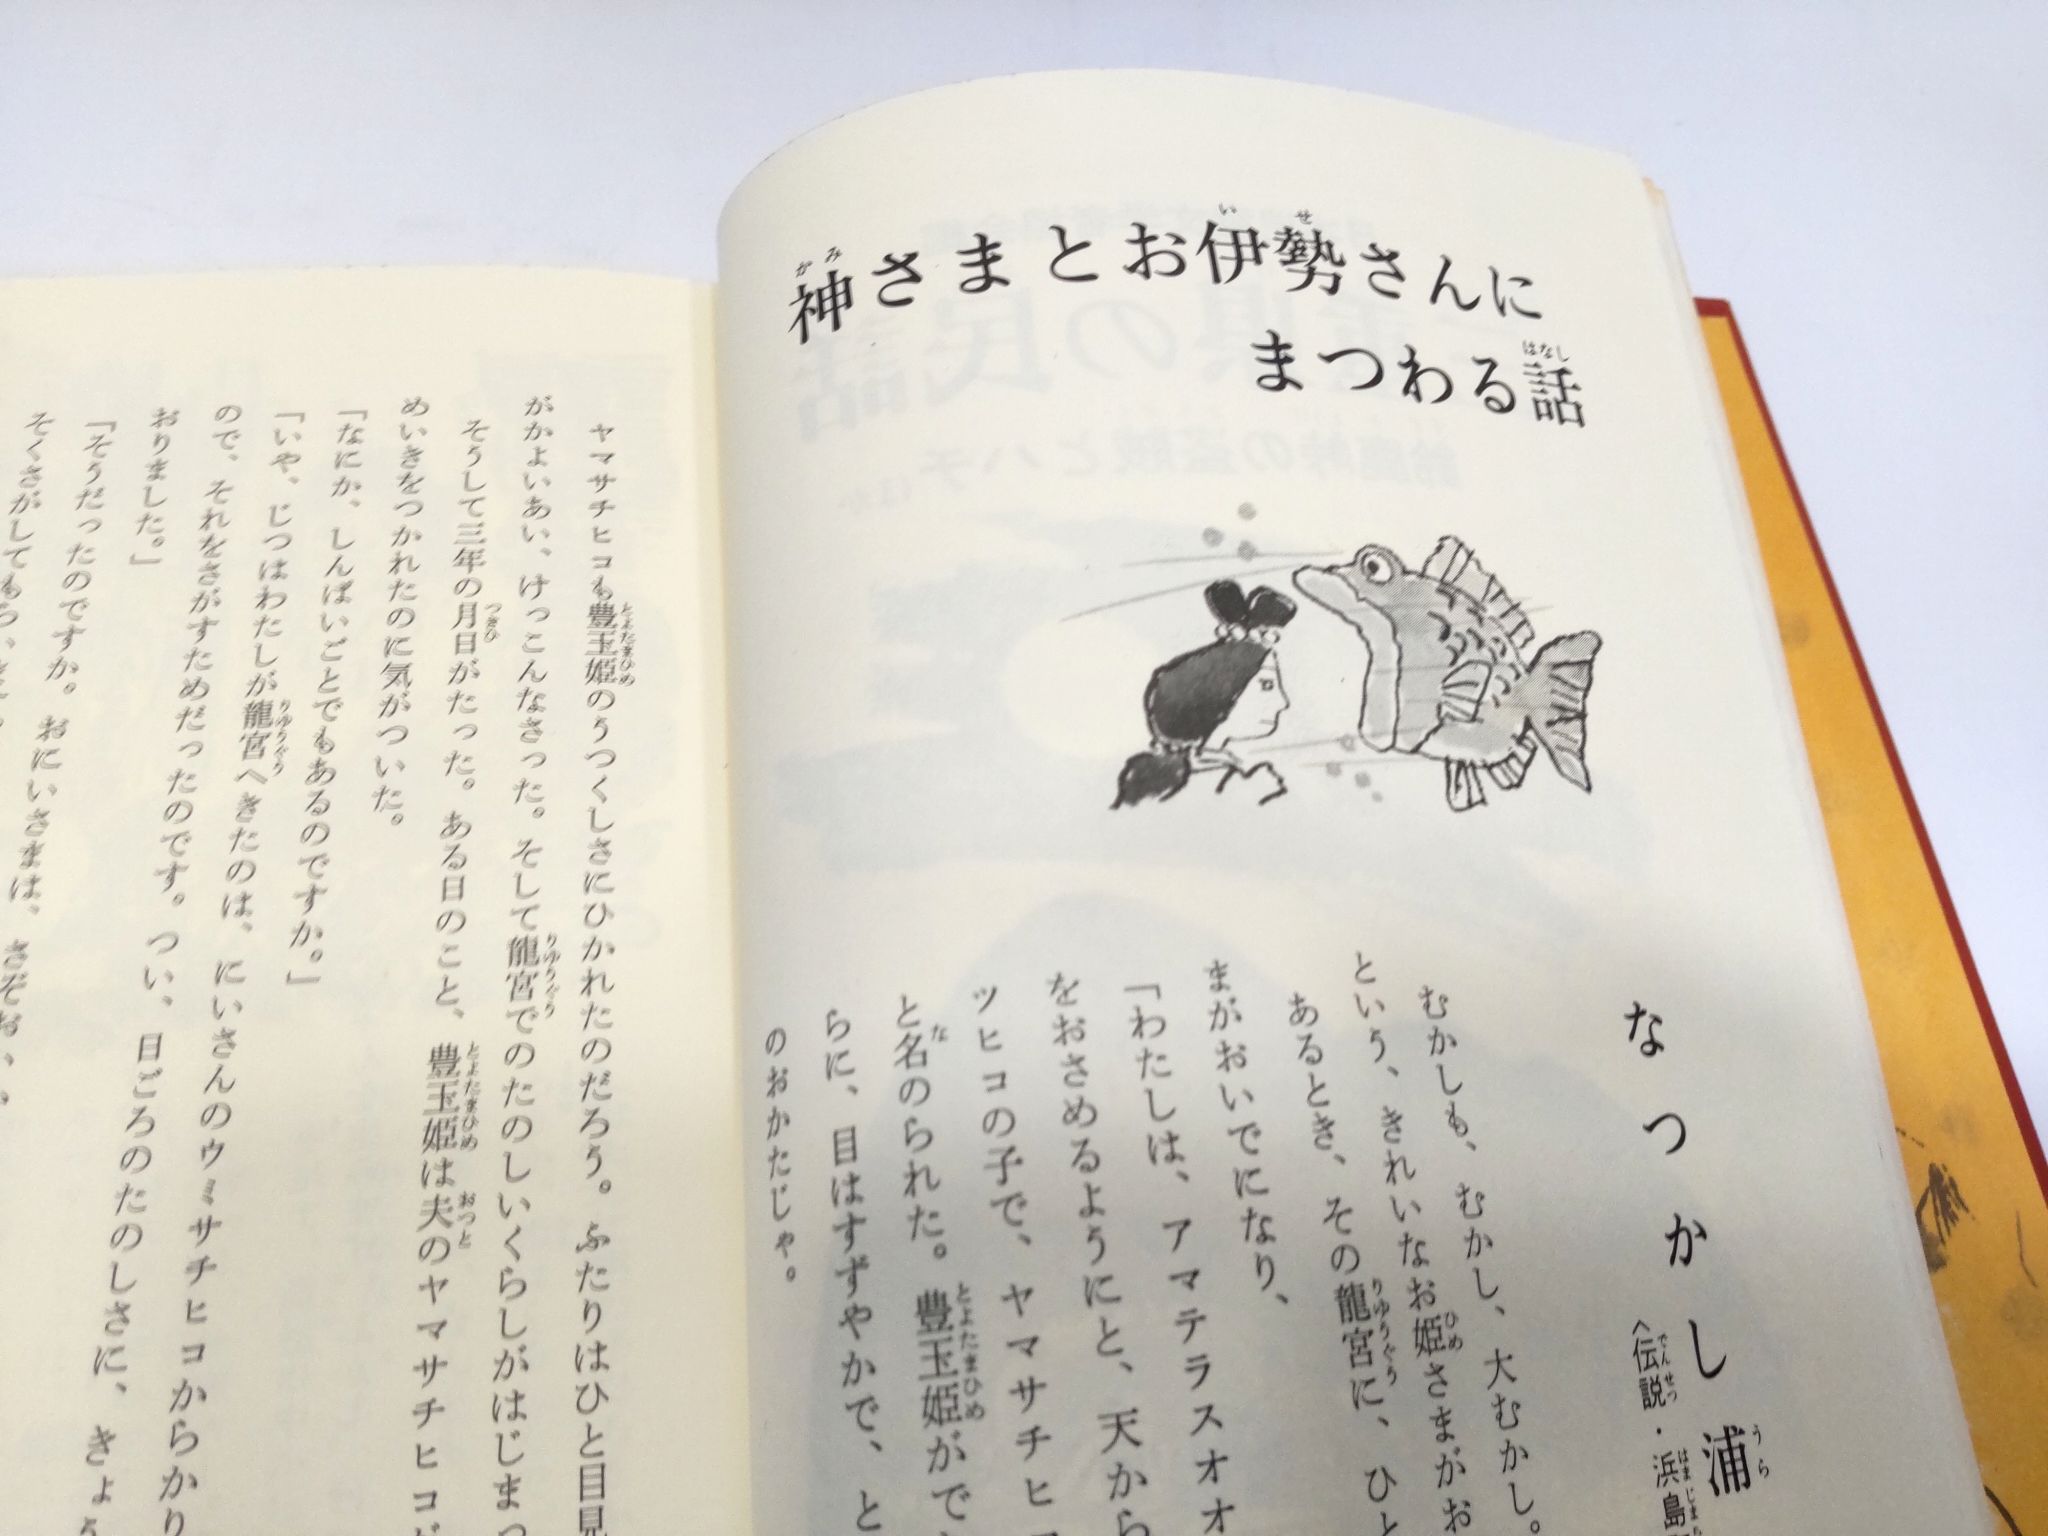 神さまとお伊勢さんに
まつわる話
なつかし浦
〈伝説・浜島
むかしも、むかし、大むかし。
という、きれいなお姫さまがお
あるとき、その龍宮に、ひと
まがおいでになり、
「わたしは、アマテラスオオ
をおさめるようにと、天から
ツヒコの子で、ヤマサチヒコ
と名のられた。豊玉姫がで
らに、目はすずやかで、と
のおかたじゃ。
ヤマサチヒコも豊玉姫のうつくしさにひかれたのだろう。ふたりはひと目見
がかよいあい、けっこんなさった。そして龍宮でのたのしいくらしがはじまっ
そうして三年の月日がたった。ある日のこと、豊玉姫は夫のヤマサチヒコが
めいきをつかれたのに気がついた。
「なにか、しんぱいごとでもあるのですか。」
「いや、じつはわたしが龍宮へきたのは、にいさんのウミサチヒコからかり
ので、それをさがすためだったのです。つい、日ごろのたのしさに、きょう
おりました。」
「そうだったのですか。おにいさまは、さぞお
そくさがしてもら